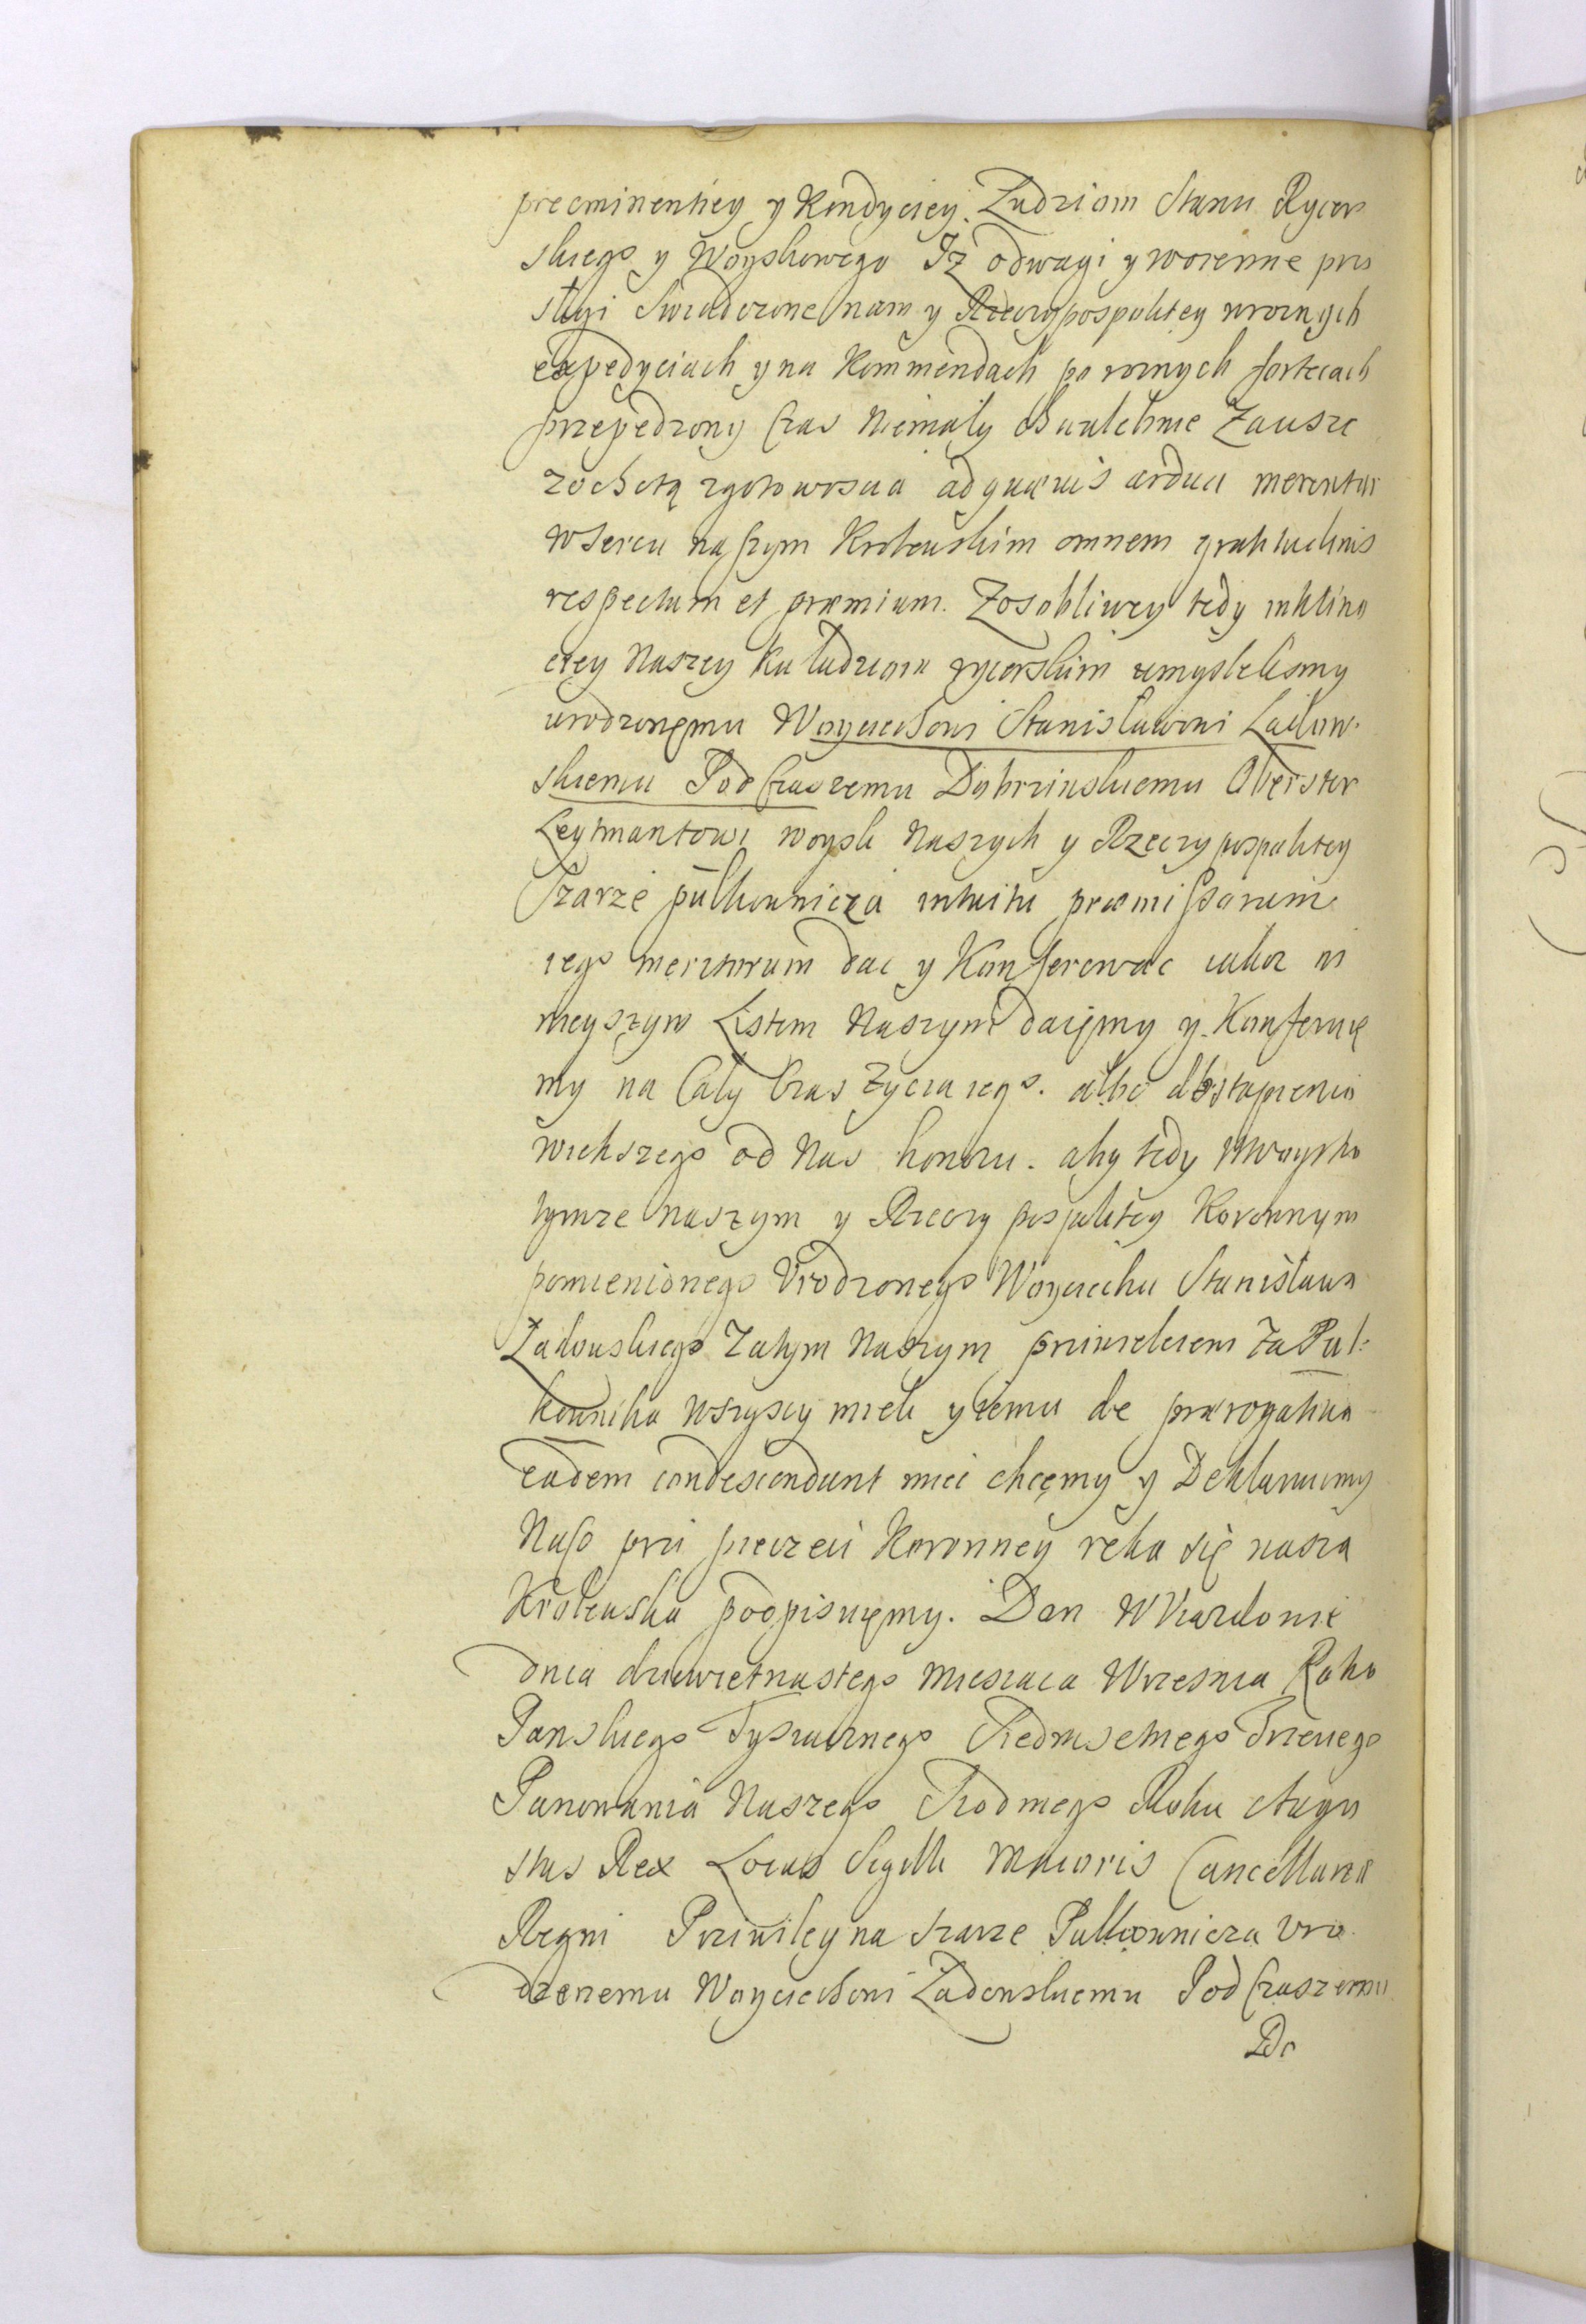 preeminentiey y Kondyciey. Ludziom Stanu Rycer
skiego y Woyskowego Iż odwagi y woienne przy
sługi swiadczone nam y Rzeczypospolitey wroznych
expedyciach y na Kommendach po roznych fortecach
przepędzony Czas niemały chwalebnie Zawsze
zochotą zgotowoscia ad quaevis ardua merentur
w sercu naszym Krolewskim omnem gratitudinis
respectum et praemium. Zosobliwey tedy inklina
cyey Naszey ku ludziom rycerskim umyslelismy
urodzonemu Woyciechowi Stanisławowi Ładow-
skiemu Podczaszemu Dobrzinskiemu Oberster
Leytmantowi woysk Naszych y Rzeczypospolitey
Szarze pułkowniczą intuitu praemissorum
iego meritorum dac y Konferowac iakoz ni
nieyszym Listem Naszym daiemy y Konferuie
my na Cały Czas zycia iego. albo dostąpienia
wiekszego od Nas honoru. aby tedy wwoysko
tymze naszym y Rzeczy pospolitey Koronnym
pomienionego Vrodzonego Woyciecha Stanisława
Ładowskiego Zatym Naszym prziwileiem Za Puł-
kownika wszyscy mieli y iemu de praerogativa
eadem condescendant miec chcemy y Deklaruiemy
Naco przi pieczeci Koronney reka się naszą
Krolewska podpisuięmy. Dan W Viazdowie
dnia dziewietnastego Miesiaca Wrzesnia Roku
Panskiego Tysiacznego Siedmsetnego Trzeciego
Panowania Naszego Siodmego Roku Augu
stus Rex Locus Sigilli Maioris Cancellariae
Regni Przywiley na szarze Pułkownicza Vro
dzonemu Woyciechowi Ładowskiemu Podczaszemu
Do